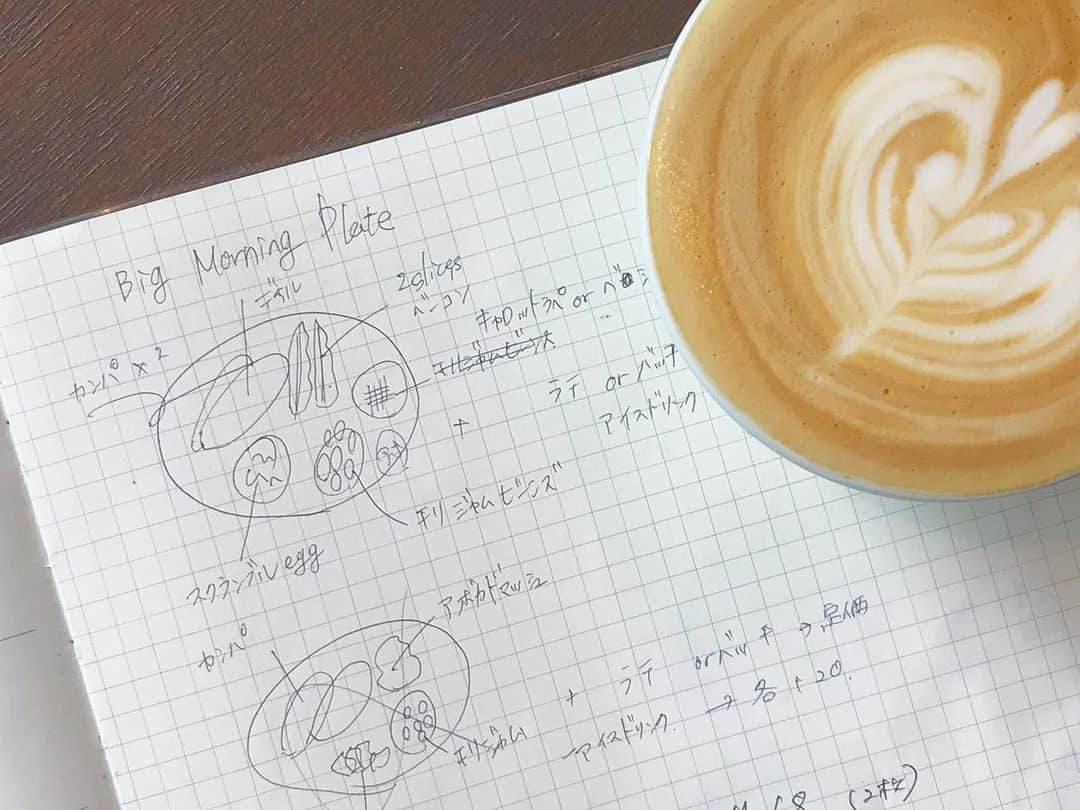 Big Morning Plate
2slices
ベーコン
カンパ×2
キャロットラペ or
+ ラテ or バッチ
アイスドリンク
チリジャムビーンズ
スクランブルegg
アボカドマッシュ
カンパ
チリジャム
+ ラテ or バッチ → 定価
アイスドリンク → 各+20.